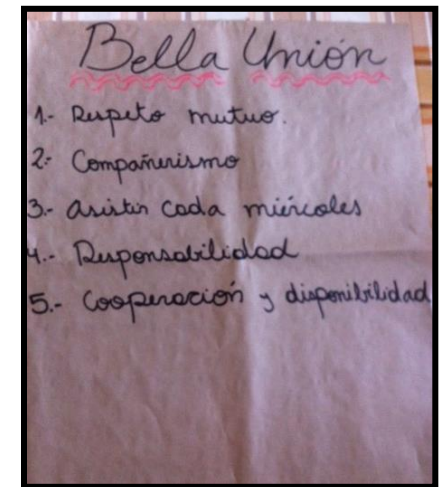 Bella Unión
1.- Respeto mutuo.
2.- Compañerismo
3.- asistir cada miércoles
4.- Responsabilidad
5.- Cooperación y disponibilidad